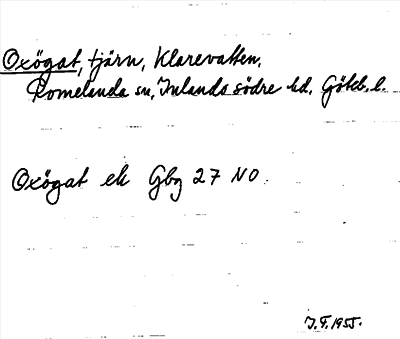 Oxögat, tjärn, Klarevatten,
Romelanda sn, Inlands södre hd, Göteb. l.
Oxögat ek Gbg 27 NO.
J.F. 1955.